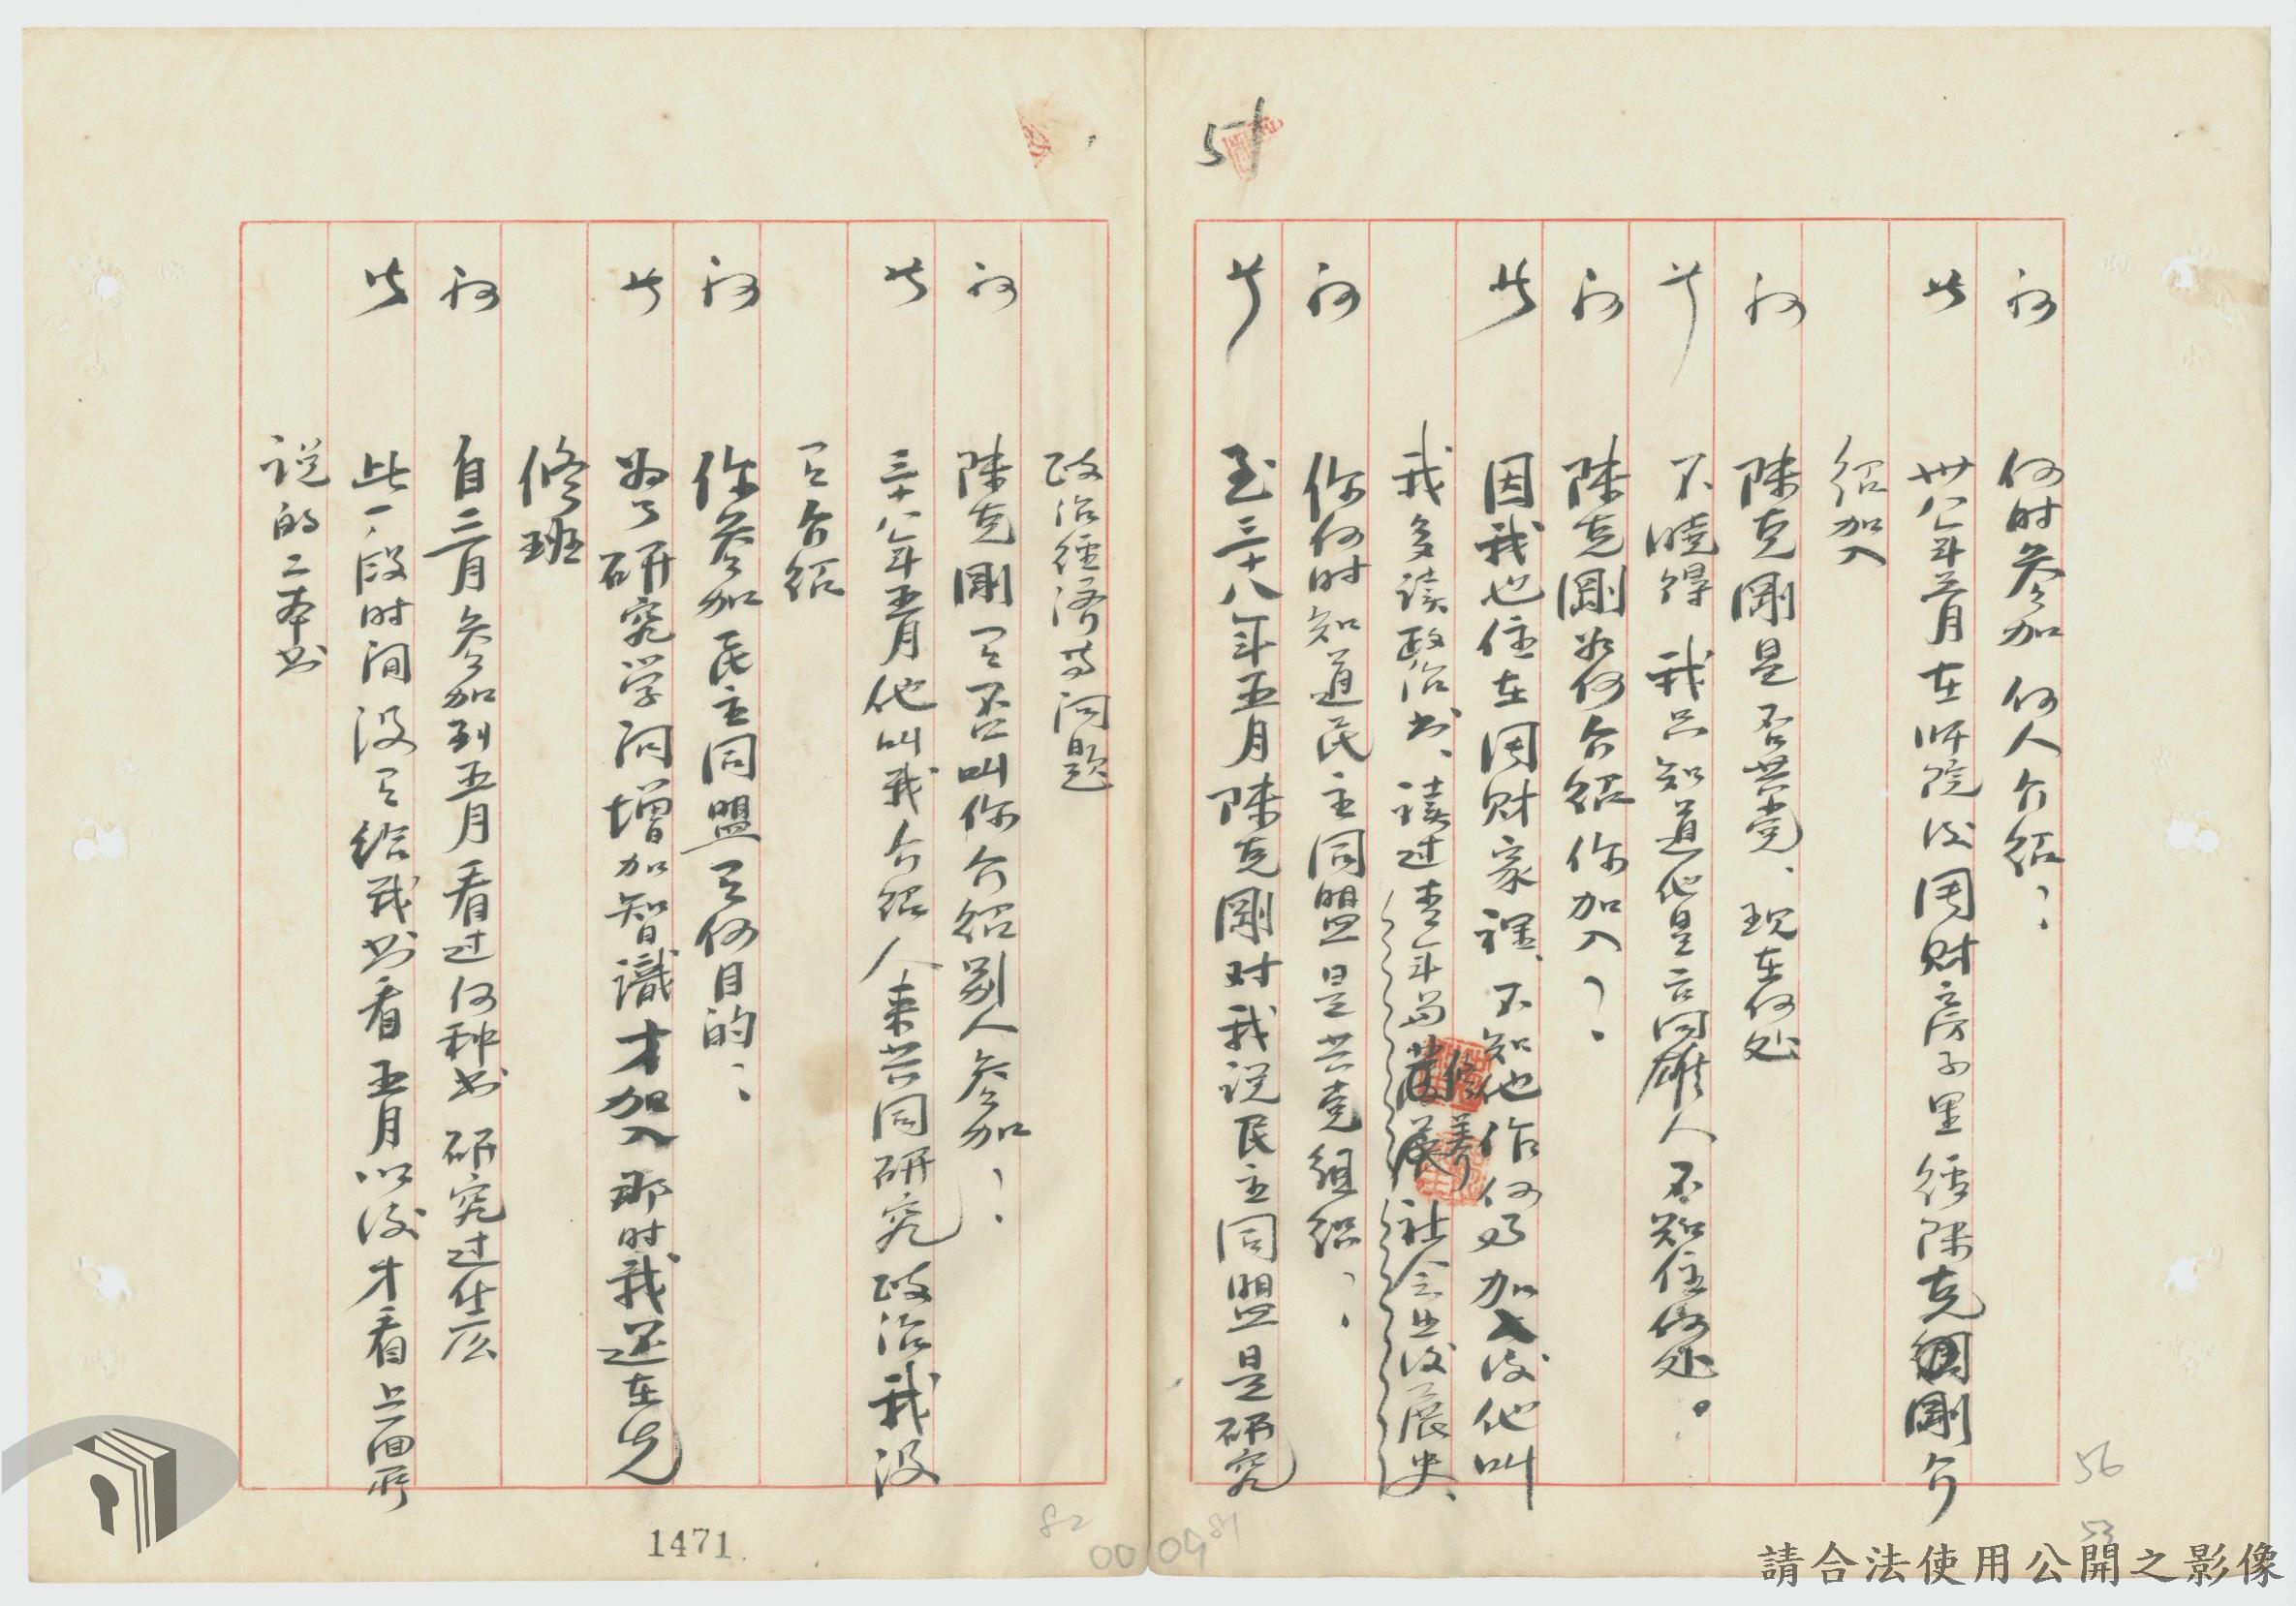 51
问 何时参加 何人介绍?
答 卅八年三月在师院后周财房子里 经陈克剛介
绍加入
问 陈克剛是否共党、现在何处
答 不晓得 我只知道他是 人 不知住何处。
问 陈克剛如何介绍你加入?
答 因我也住在周财家裡、不知他作何的 加入后他叫
我多读政治书、读过青年 修养 社会 发展史、
问 你何时知道民主同盟是共党组织?
答 至三十八年五月 陈克剛对我说民主同盟是研究
政治经济等问题
问 陈克剛有否叫你介绍别人参加?
答 三十八年五月他叫我介绍人来共同研究政治 我没
有介绍
问 你参加民主同盟有何目的?
答 为了研究学问增加智識才加入 那时我还在先
修班
问 自三月参加到五月看过何种书 研究过什么
答 此一段时间没有给我书看 五月以后才看上面所
说的二本书
1471
82
00
81
56
53
請合法使用公開之影像